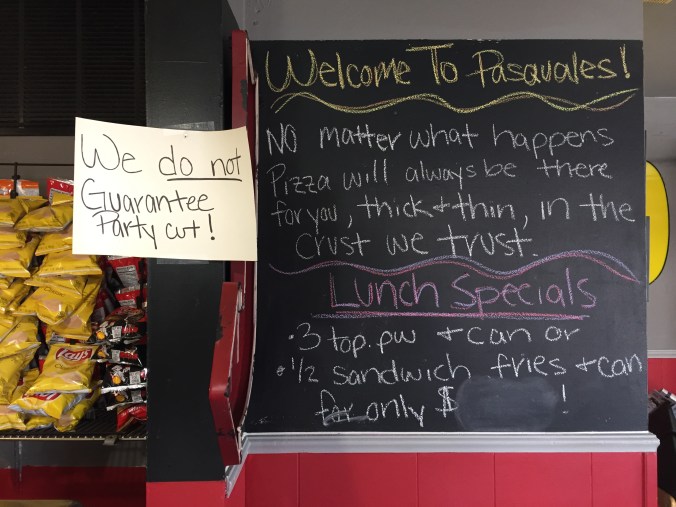 We do not
Guarantee
Party cut!
Welcome To Pasquales!
No matter what happens
Pizza will always be there
for you, thick + thin, in the
crust we trust.
Lunch Specials
• 3 top. pw + can or
• 1/2 sandwich fries + can
for only $ !
Lay's